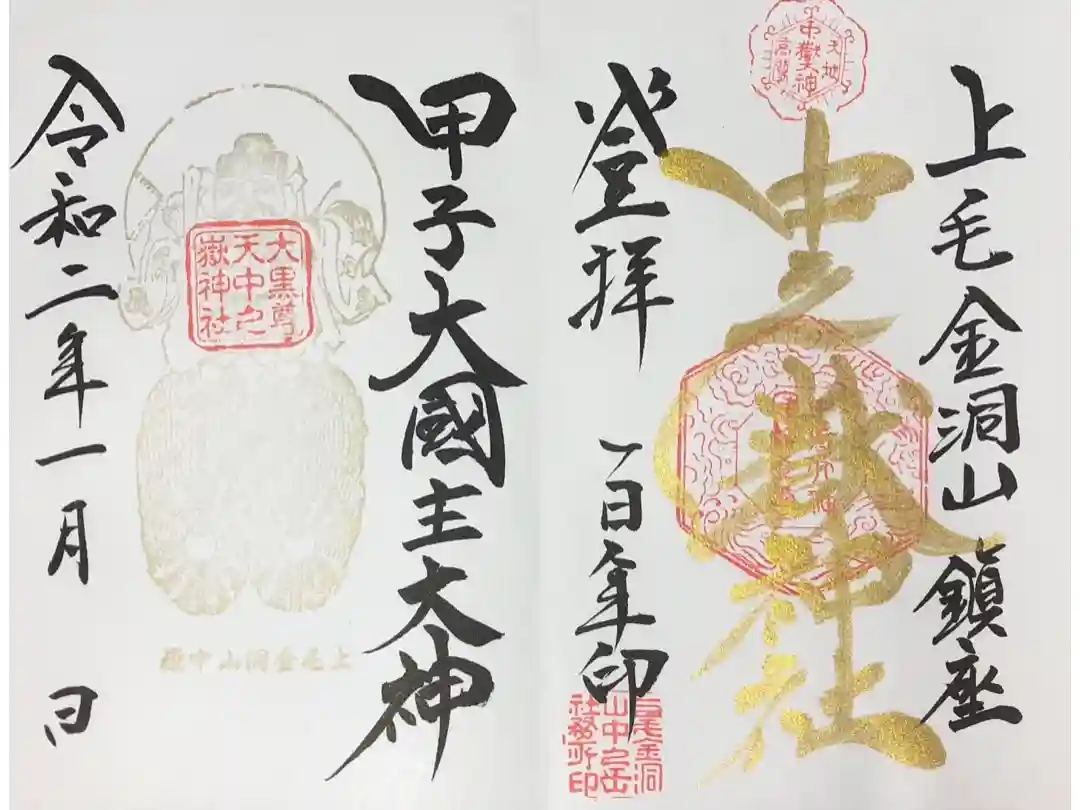 上毛金洞山 鎮座
中之嶽神社
登拝 一百年印
甲子大國主大神
令和二年一月 日
中嶽神
天地
大黒尊
天中之
嶽神社
上毛金洞
山中之岳
社務所印
上毛金洞山中嶽